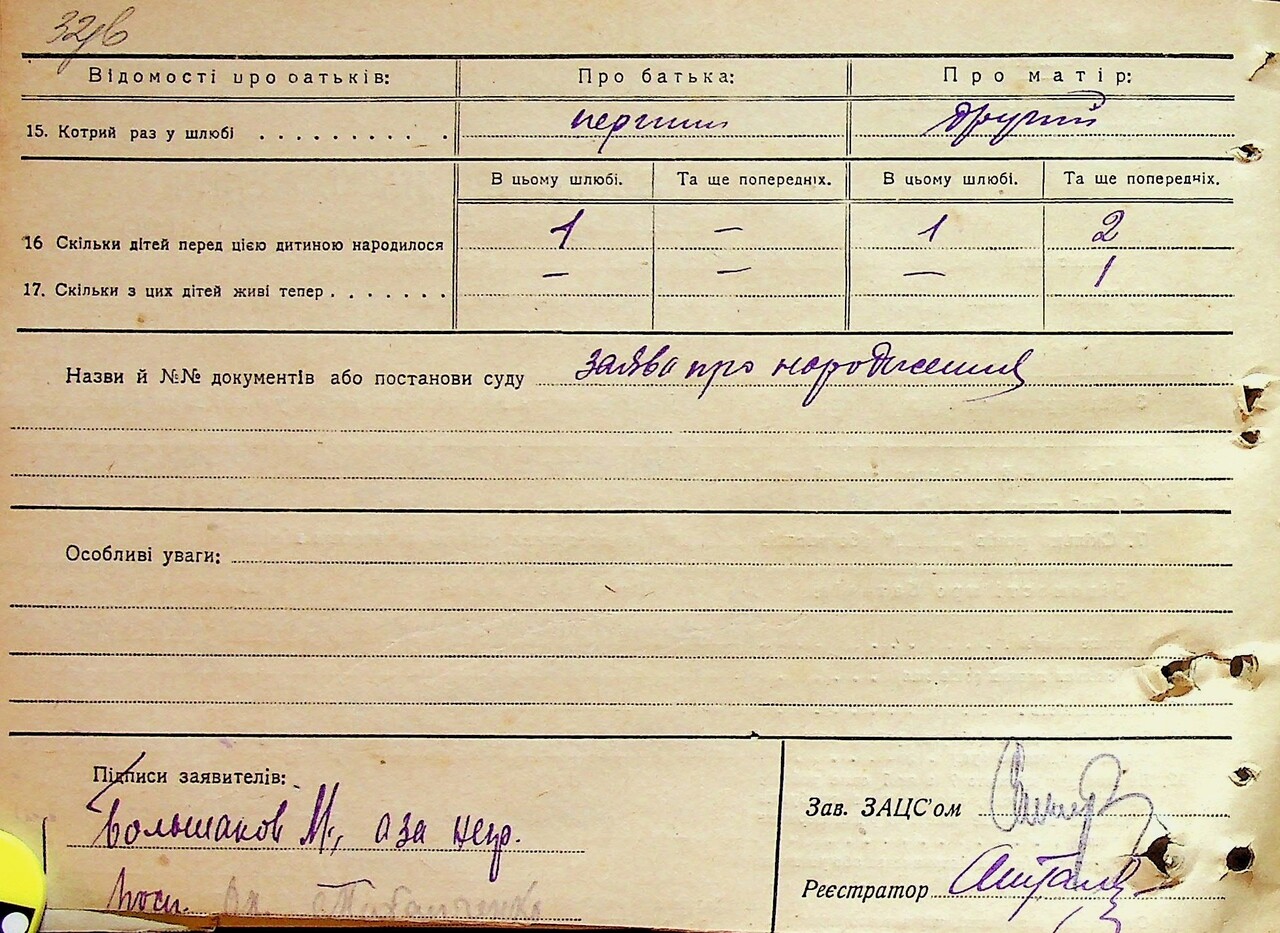 32 зв
Відомості про батьків: Про батька: Про матір:
15. Котрий раз у шлюбі . . . . . . . . . . перший другий
В цьому шлюбі. Та ще попередніх. В цьому шлюбі. Та ще попередніх.
16 Скільки дітей перед цією дитиною народилося 1 — 1 2
17. Скільки з цих дітей живі тепер . . . . . . . — — — 1
Назви й №№ документів або постанови суду заява про народження
Особливі уваги:
Підписи заявителів:
Большаков М., а за непр.
Зав. ЗАЦС'ом
Реєстратор